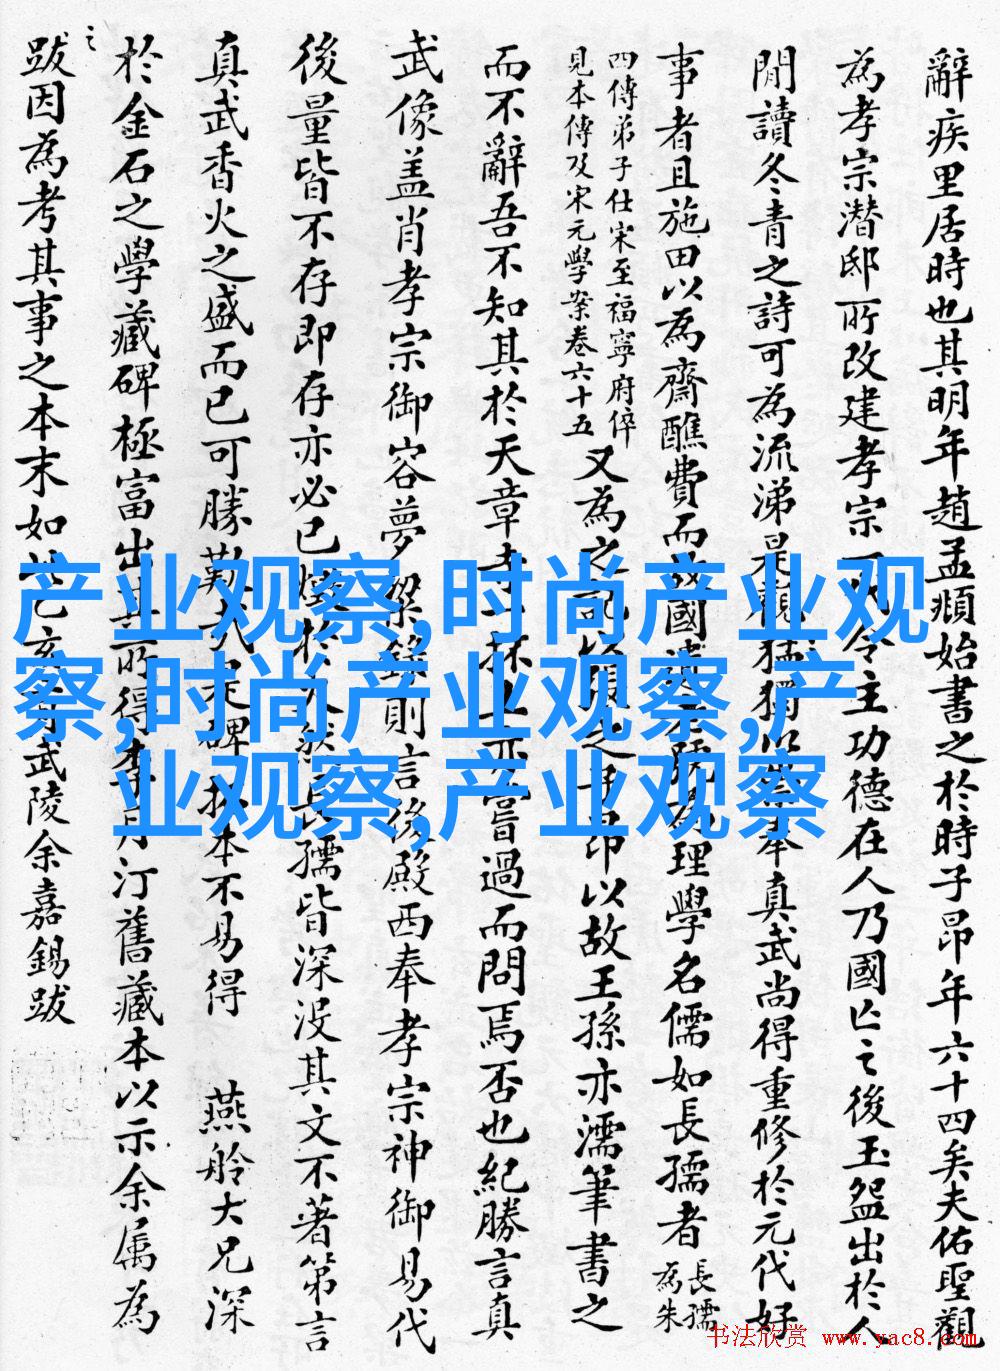 辭疾里居時也其明年趙孟頫始書之於時子昂年六十四矣夫佑聖觀
為孝宗潛邸所改建孝宗令主功德在人乃國亡之後玉盌出於人
閒讀冬青之詩可為流涕是觀猛獨以崇奉真武尚得重修於元代好
事者且施田以為齋醮費而故國理學名儒如長孺者
長孺
為朱
四傳弟子仕宋至福寧府倅
見本傳及宋元學案卷六十五
又為之記以張之子昂以故王孫亦濡筆書之
而不辭吾不知其於天章寺抔土亦嘗過而問焉否也紀勝言真
武像盖肖孝宗御容夢粱錄則言後殿西奉孝宗神御易代
後量皆不存即存亦必已燬於火然長孺皆深没其文不著第言
真武香火之盛而已可勝歎碑拓本不易得 燕舲大兄深
於金石之學藏碑極富出其所得李月汀舊藏本以示余属為
之
跋因為考其事之本末如此乙亥月武陵余嘉錫跋
产业观察,时尚产业观
察,时尚产业观察,产
业观察,产业观察
书法欣赏 www.yac8.com